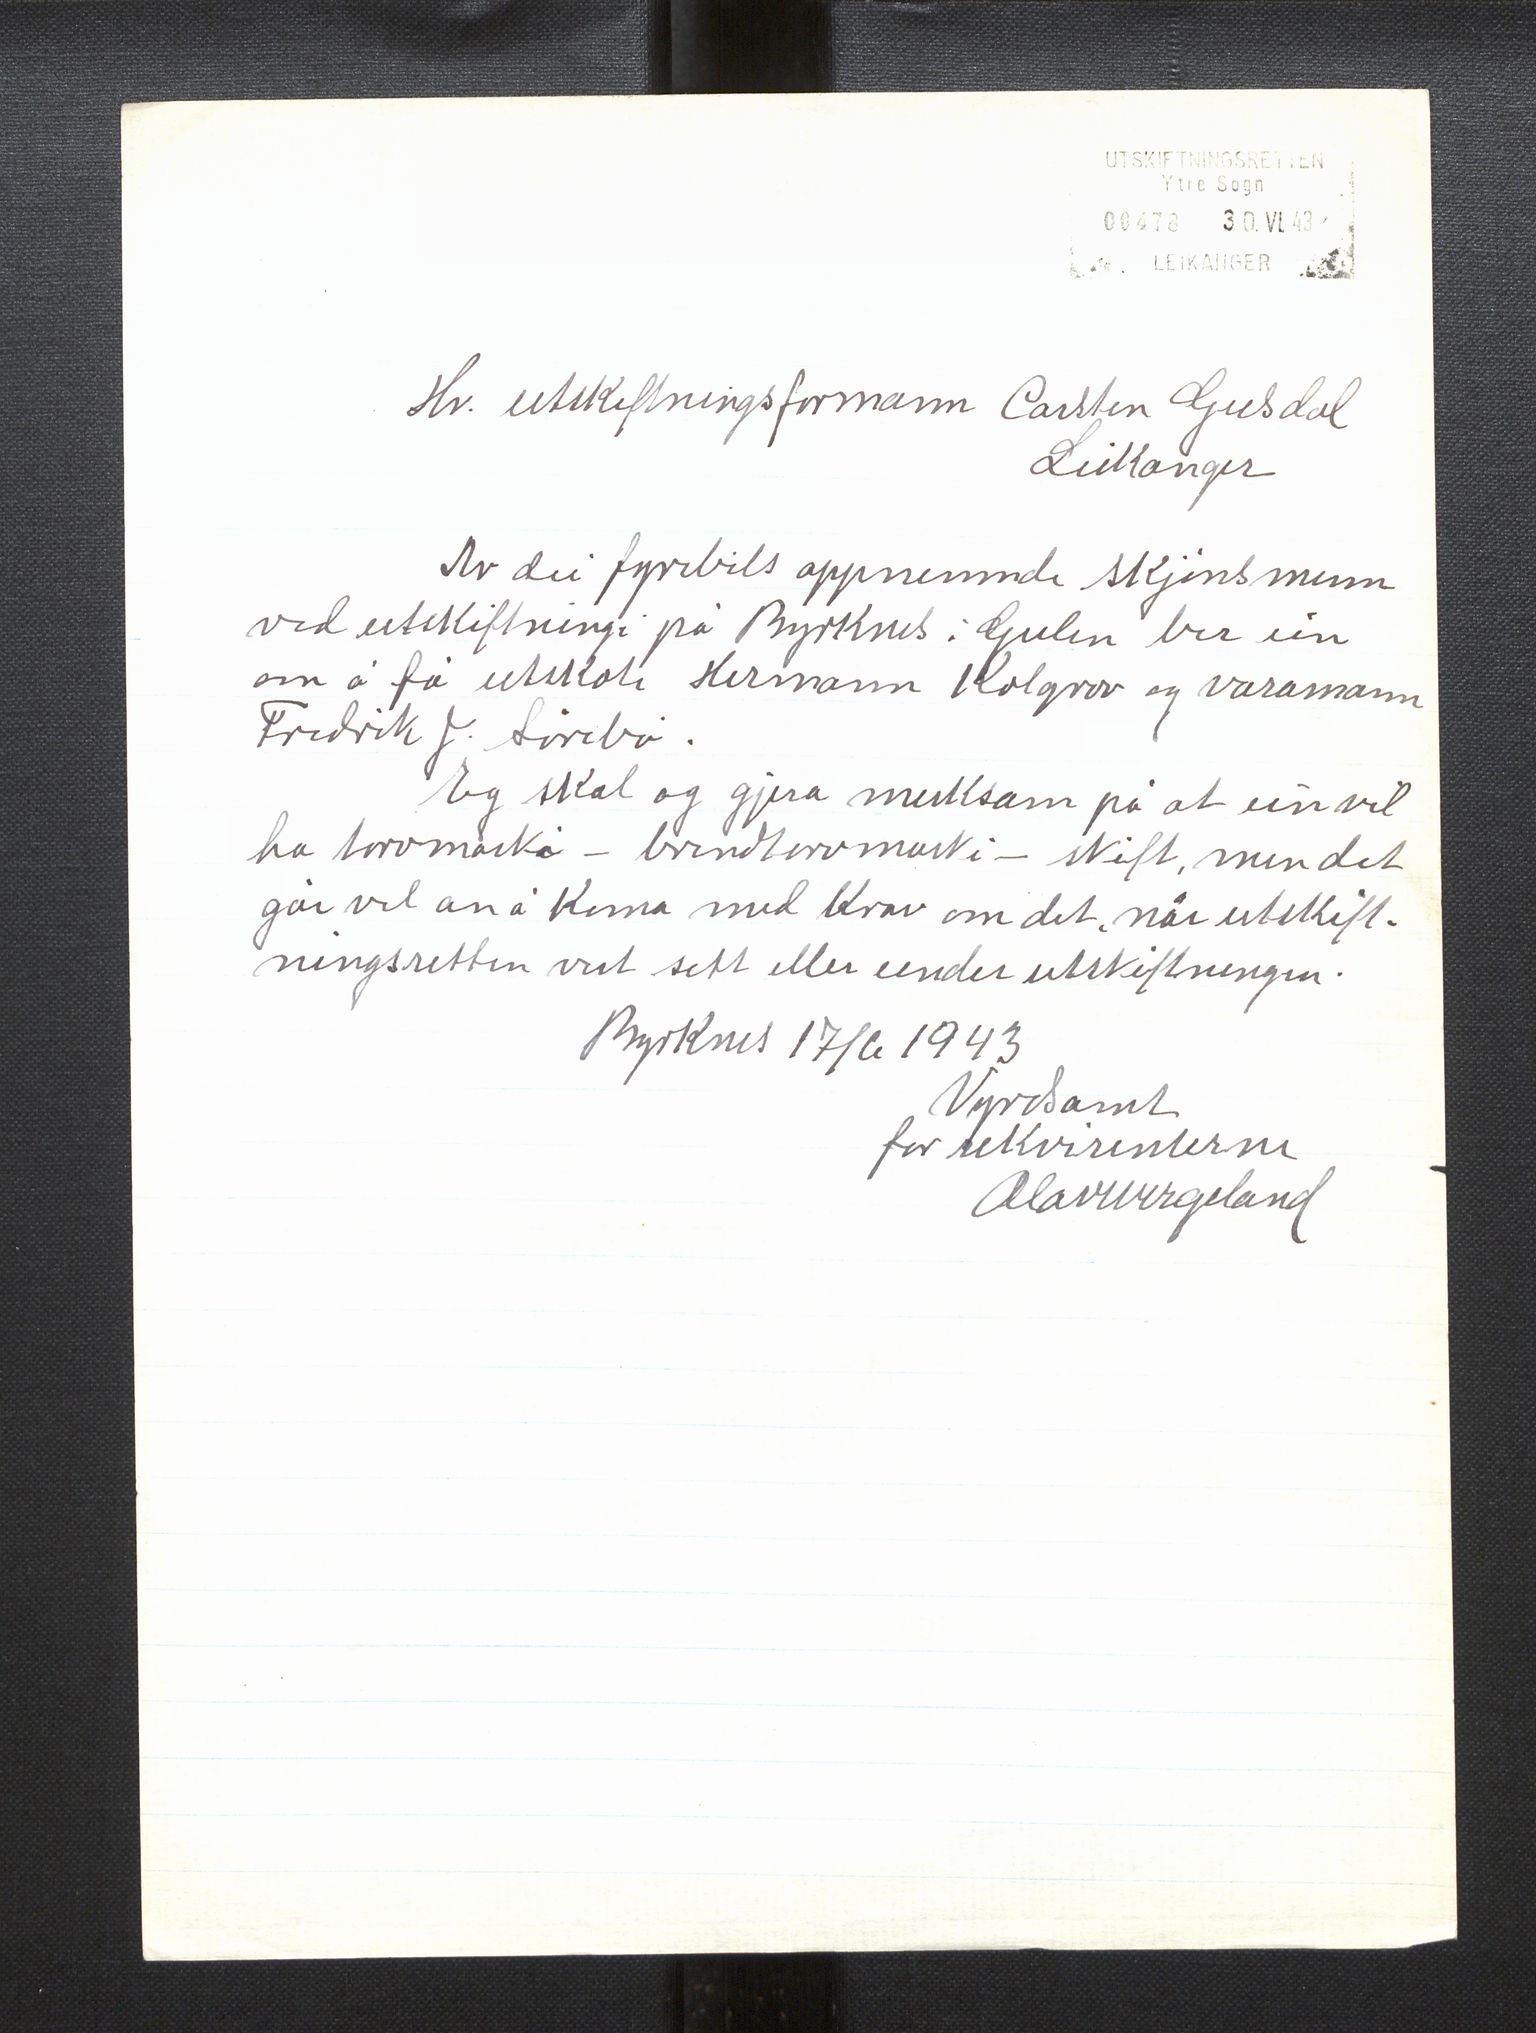 UTSKIFTNINGSRETTEN
Ytre Sogn
00478 30. VI. 43
LEIKANGER
Hr. utskiftningsformann Carsten Gjesdal
Leikanger
Av dei fyrebils oppnemnde skjönsmenn
ved utskiftningi på Byrknes i Gulen ber ein
om å få utskote Hermann Kolgrov og varamann
Fredrik J. Sörebö.
Eg skal og gjera merksam på at ein vil
ha torvmarki - brendtorvmarki - skift, men det
går vel an å koma med krav om det, når utskift-
ningsretten vert sett eller under utskiftningen.
Byrknes 17/6 1943
Vyrdsamt
for rekvirenterne
Olav Wergeland